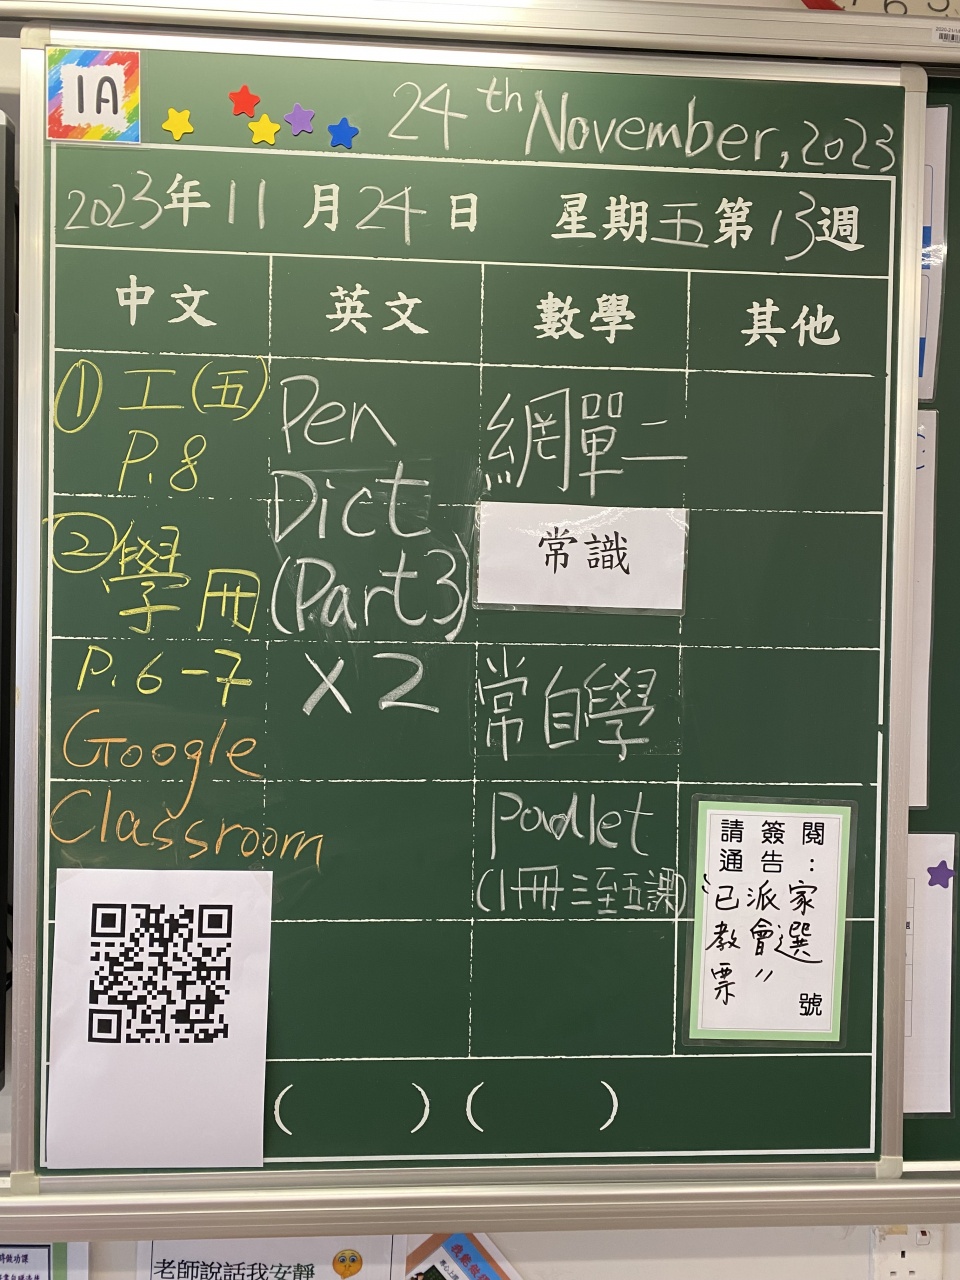 1A
24th November, 2023
2023年11月24日 星期五第13週
中文 英文 數學 其他
① 工(五)
P.8
② 學冊
P.6-7
Google
Classroom
Pen
Dict
(Part3)
X2
網單二
常識
常自學
Padlet
(1冊三至五課)
請簽閱:
通告 家
已派
教會選
票〃 號
老師說話我安靜